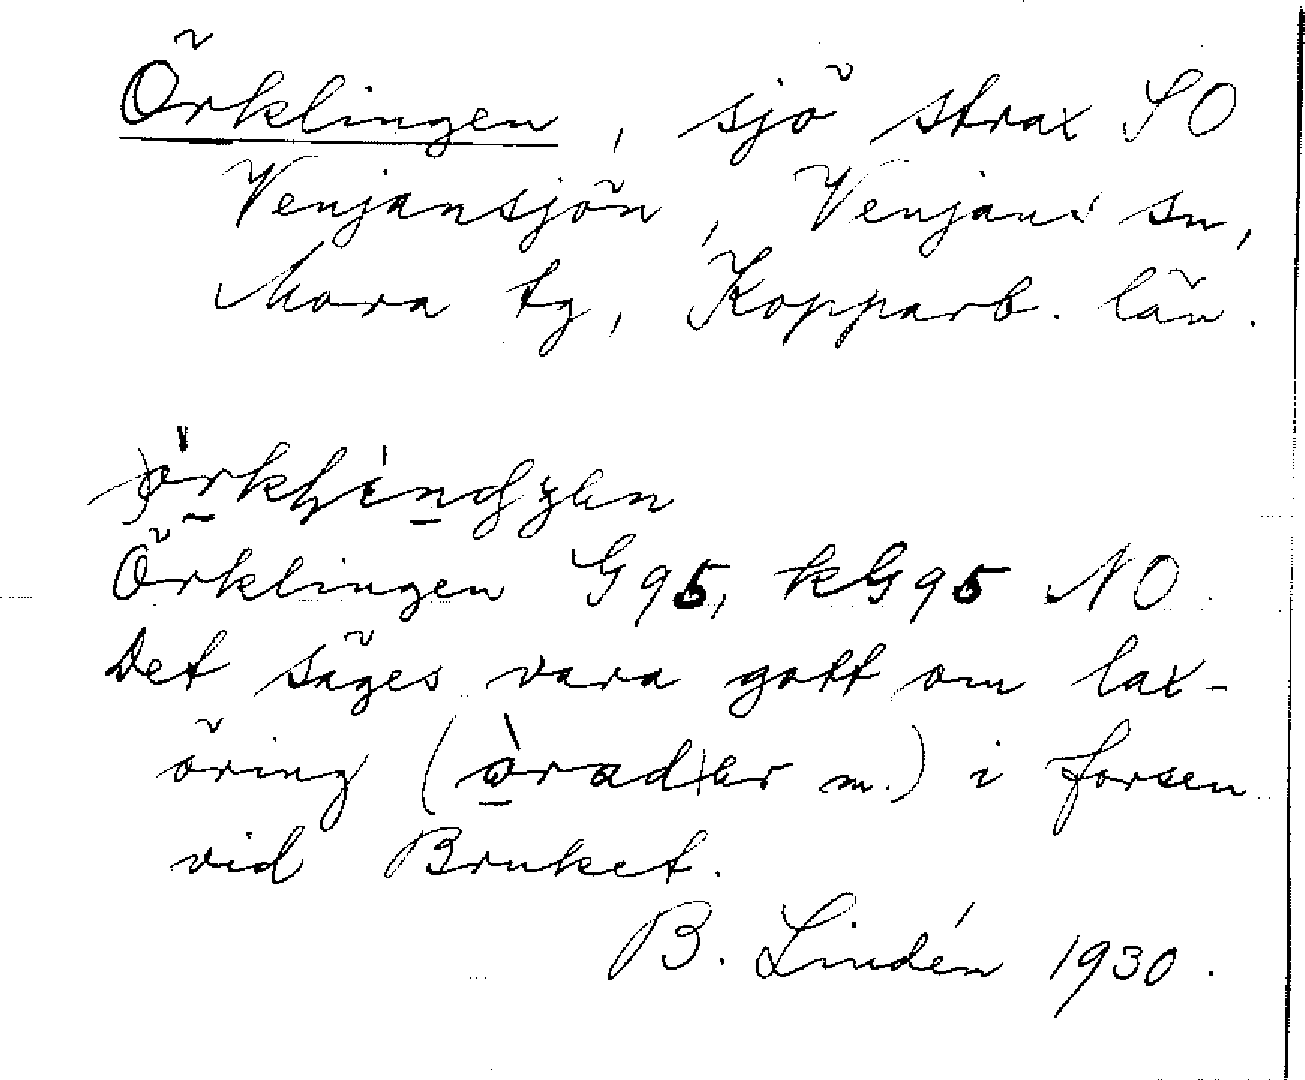 Örklingen, sjö strax SO
Venjansjön, Venjans sn,
Mora tg, Kopparb. län.
Örklingen G95, kG95 NO.
Det säges vara gott om lax-
öring ( m.) i forsen
vid Bruket.
B. Lindén 1930.